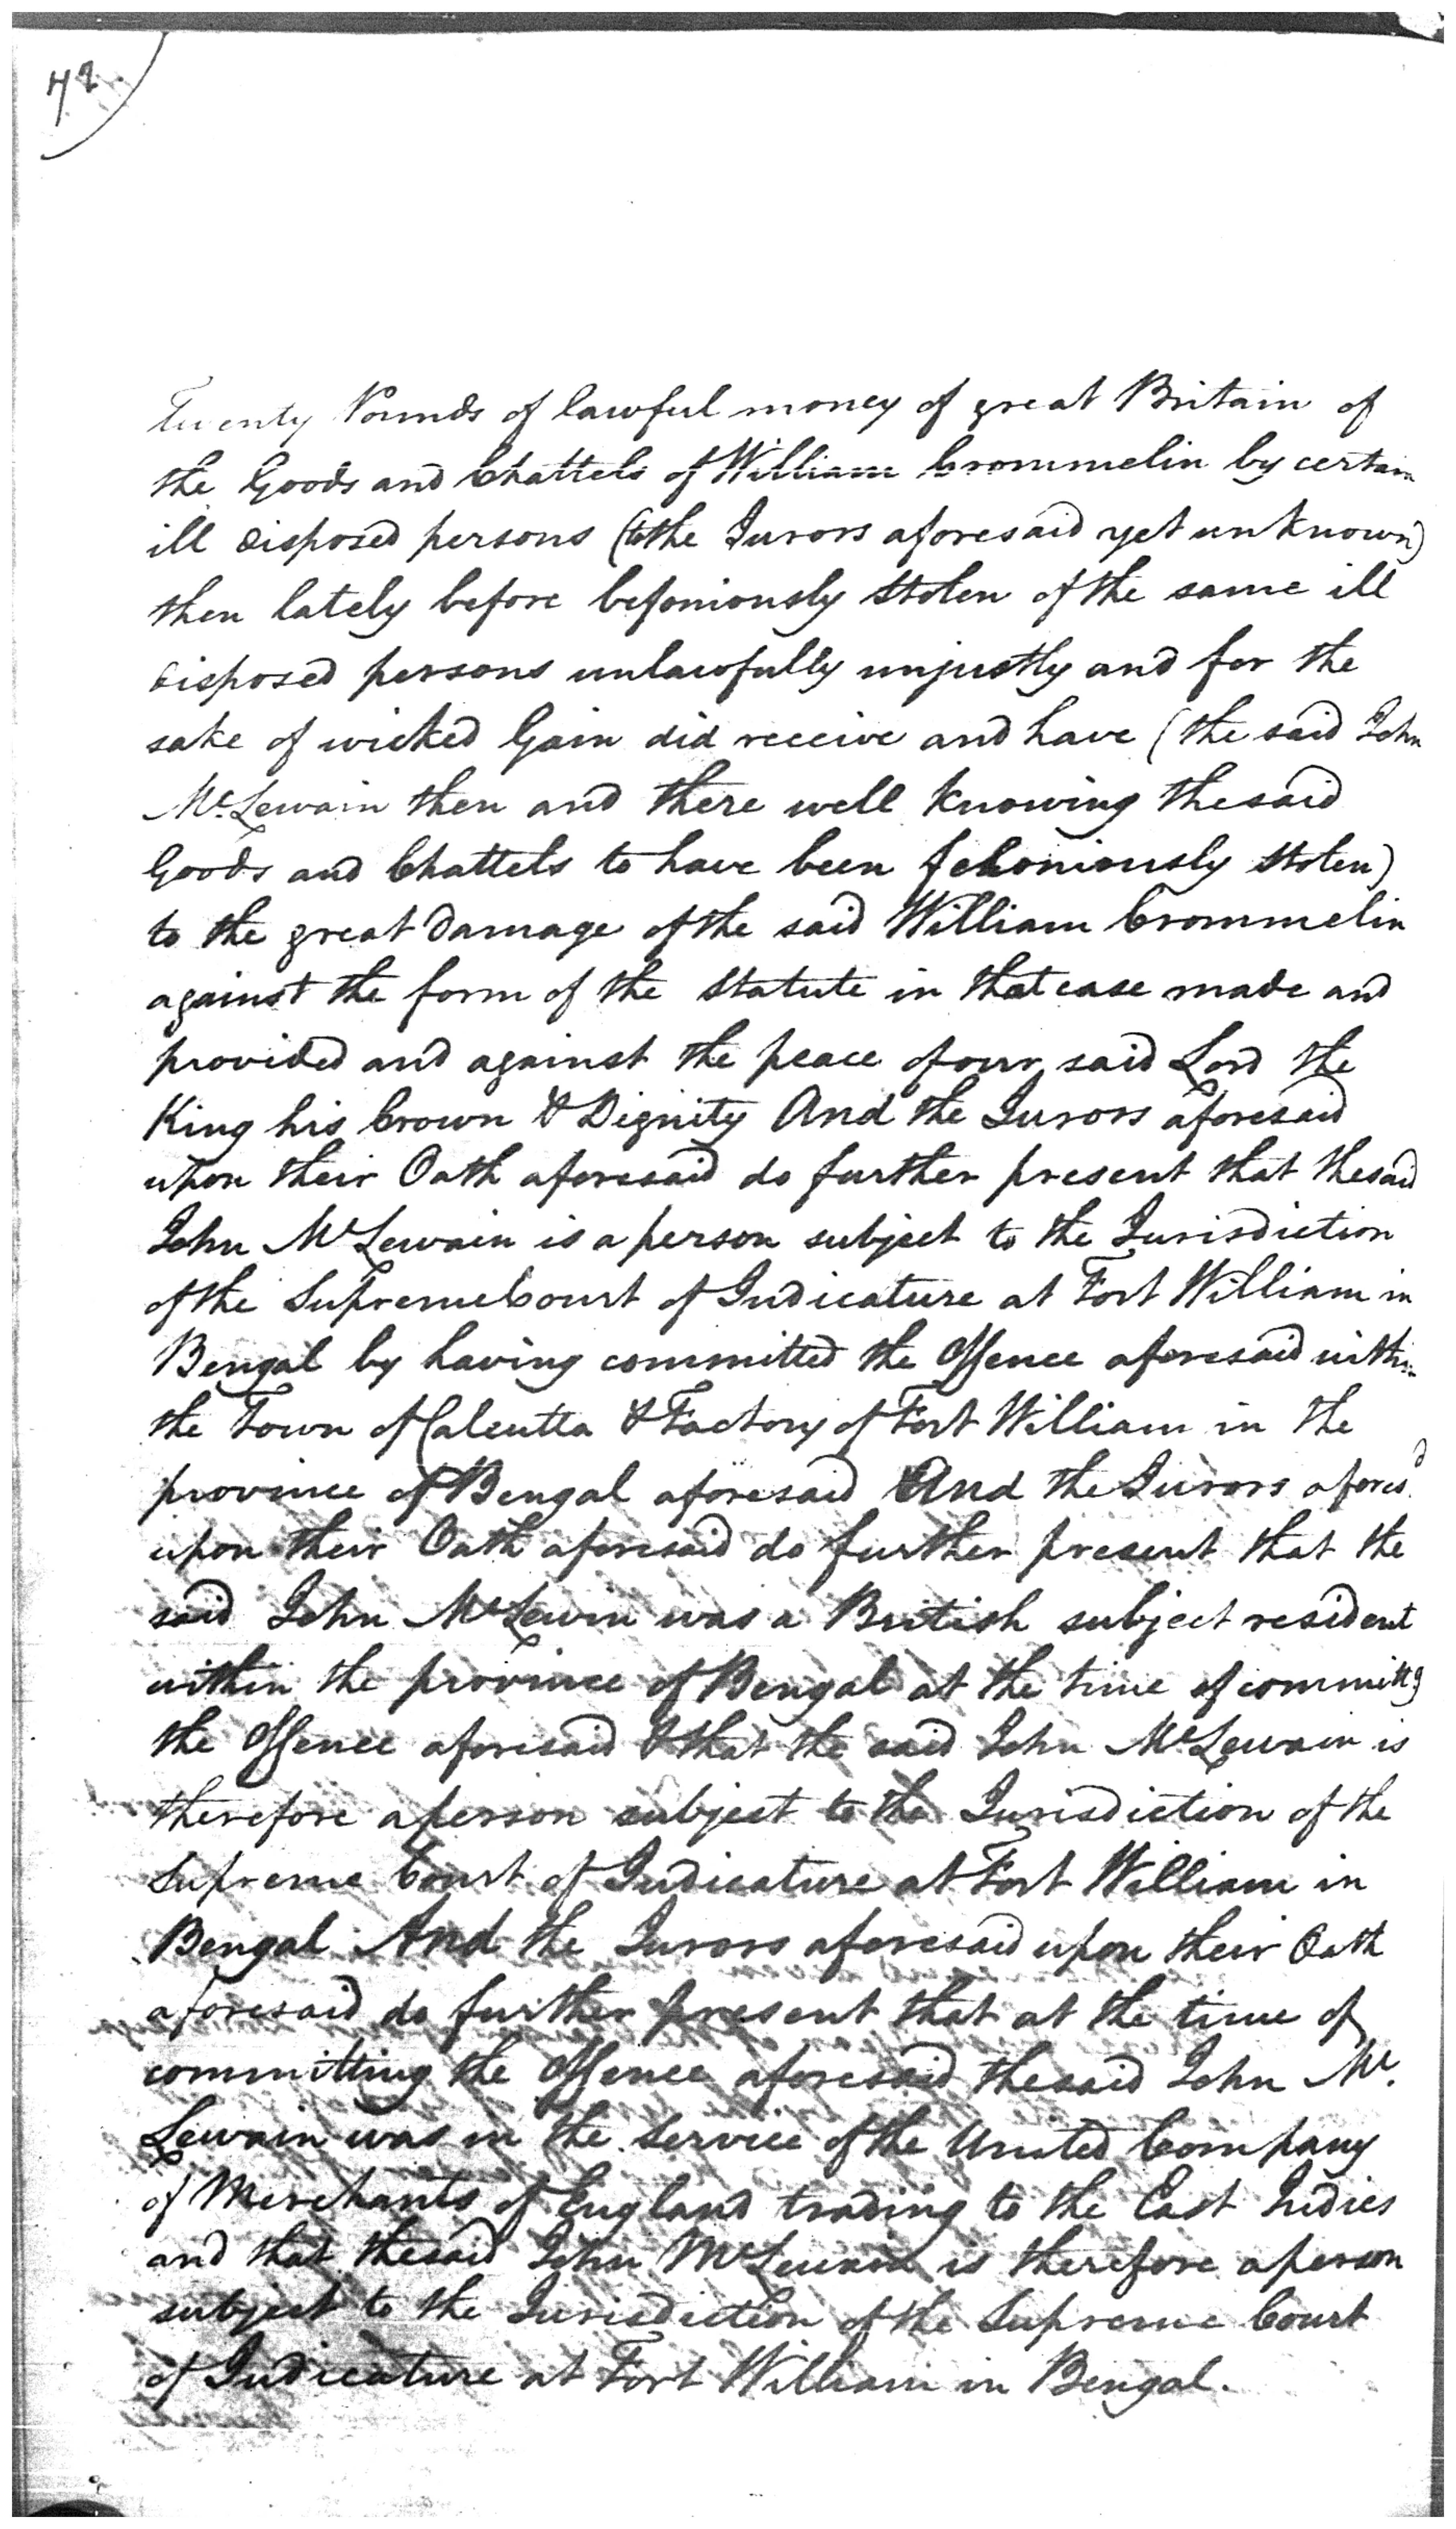 72.
Twenty Pounds of lawful money of great Britain of
the Goods and Chattels of William Crommelin by certain
ill disposed persons (to the Jurors aforesaid yet unknown)
then lately before befoniously stolen of the same ill
disposed persons unlawfully unjustly and for the
sake of wicked Gain did receive and have (the said John
Mc. Lewain then and there well knowing the said
Goods and Chattels to have been feloniously stolen)
to the great Damage of the said William Crommelin
against the form of the Statute in that case made and
provided and against the peace of our said Lord the
King his Crown & Dignity And the Jurors aforesaid
upon their Oath aforesaid do further present that the said
John Mc Lewain is a person subject to the Jurisdiction
of the Supreme Court of Judicature at Fort William in
Bengal by having committed the Offence aforesaid within
the Town of Calcutta & Factory of Fort William in the
province of Bengal aforesaid And the Jurors aforesd.
upon their Oath aforesaid do further present that the
said John Mc Lewin was a British subject resident
within the province of Bengal at the time of committg
the Offence aforesaid & that the said John Mc Lewain is
therefore a person subject to the Jurisdiction of the
Supreme Court of Judicature at Fort William in
Bengal And the Jurors aforesaid upon their Oath
aforesaid do further present that at the time of
committing the Offence aforesaid the said John Mc.
Lewain was in the Service of the United Company
of Merchants of England trading to the East Indies
and that the said John Mc Lewain is therefore a person
subject to the Jurisdiction of the Supreme Court
of Judicature at Fort William in Bengal.